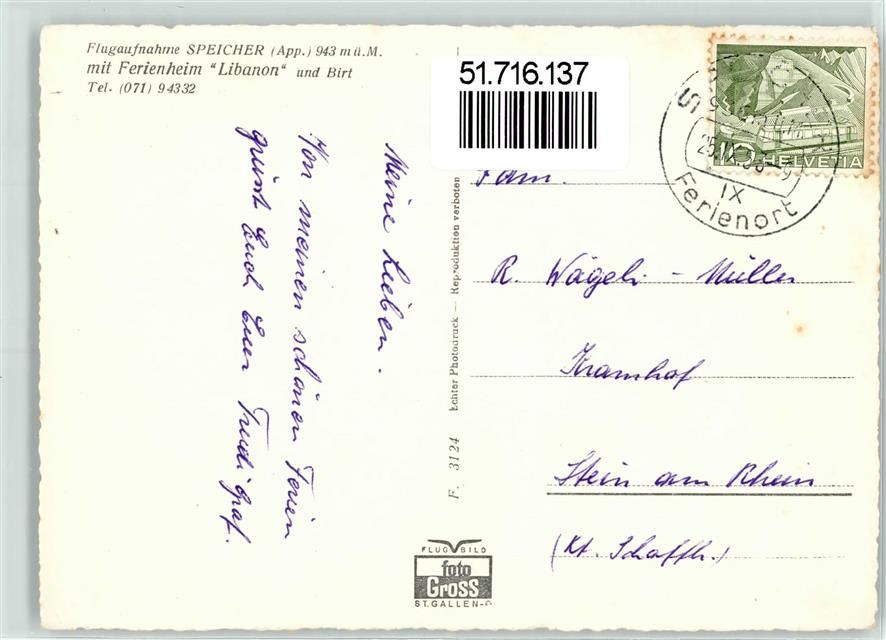 Flugaufnahme SPEICHER (App.) 943 m ü. M.
mit Ferienheim "Libanon" und Birt
Tel. (071) 9 43 32
51.716.137
10 HELVETIA
IX
Ferienort
Meine Lieben.
Von meinen schönen Ferien
grüsst Euch Euer Trudi Graf.
F. 3124 Echter Photodruck — Reproduktion verboten
Fam.
R. Wägeli - Müller
Kramhof
Stein am Rhein
(Kt. Schaffh.)
FLUG BILD
foto
Gross
ST. GALLEN-O